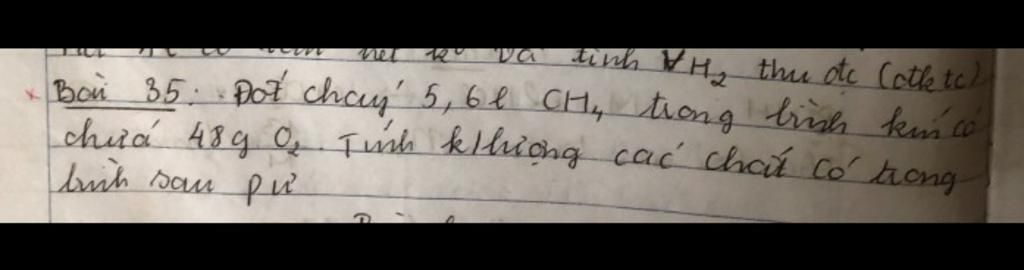 và tính VH₂ thu đc (đktc)
Bài 35: Đốt cháy 5,6l CH₄ trong bình kín có
chứa 48g O₂. Tính k/lượng các chất có trong
bình sau pư